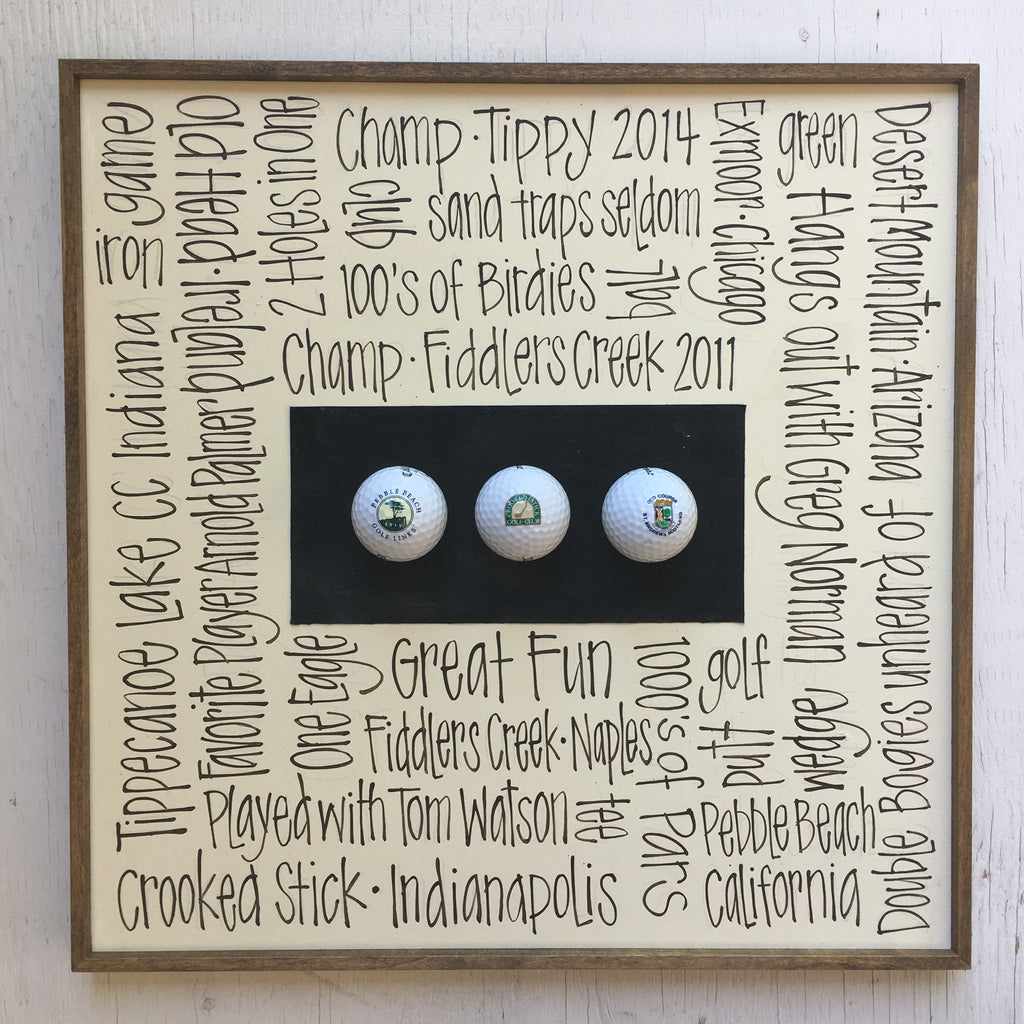 iron game
Old Head · Ireland
2 Holes in One
Champ · Tippy 2014
club
sand traps seldom
100's of Birdies
ball
Champ · Fiddlers Creek 2011
Exmoor · Chicago
green
Hangs out with Greg Norman
Desert Mountain · Arizona
Tippecanoe Lake CC Indiana
Favorite Player Arnold Palmer
PEBBLE BEACH
GOLF LINKS
GOLF CLUB
OLD COURSE
ST. ANDREWS SCOTLAND
One Eagle
Great Fun
Fiddlers Creek · Naples
1000's of Pars
golf
putt
wedge
Double Bogies unheard of
Played with Tom Watson
tee
Crooked Stick · Indianapolis
Pebble Beach
California